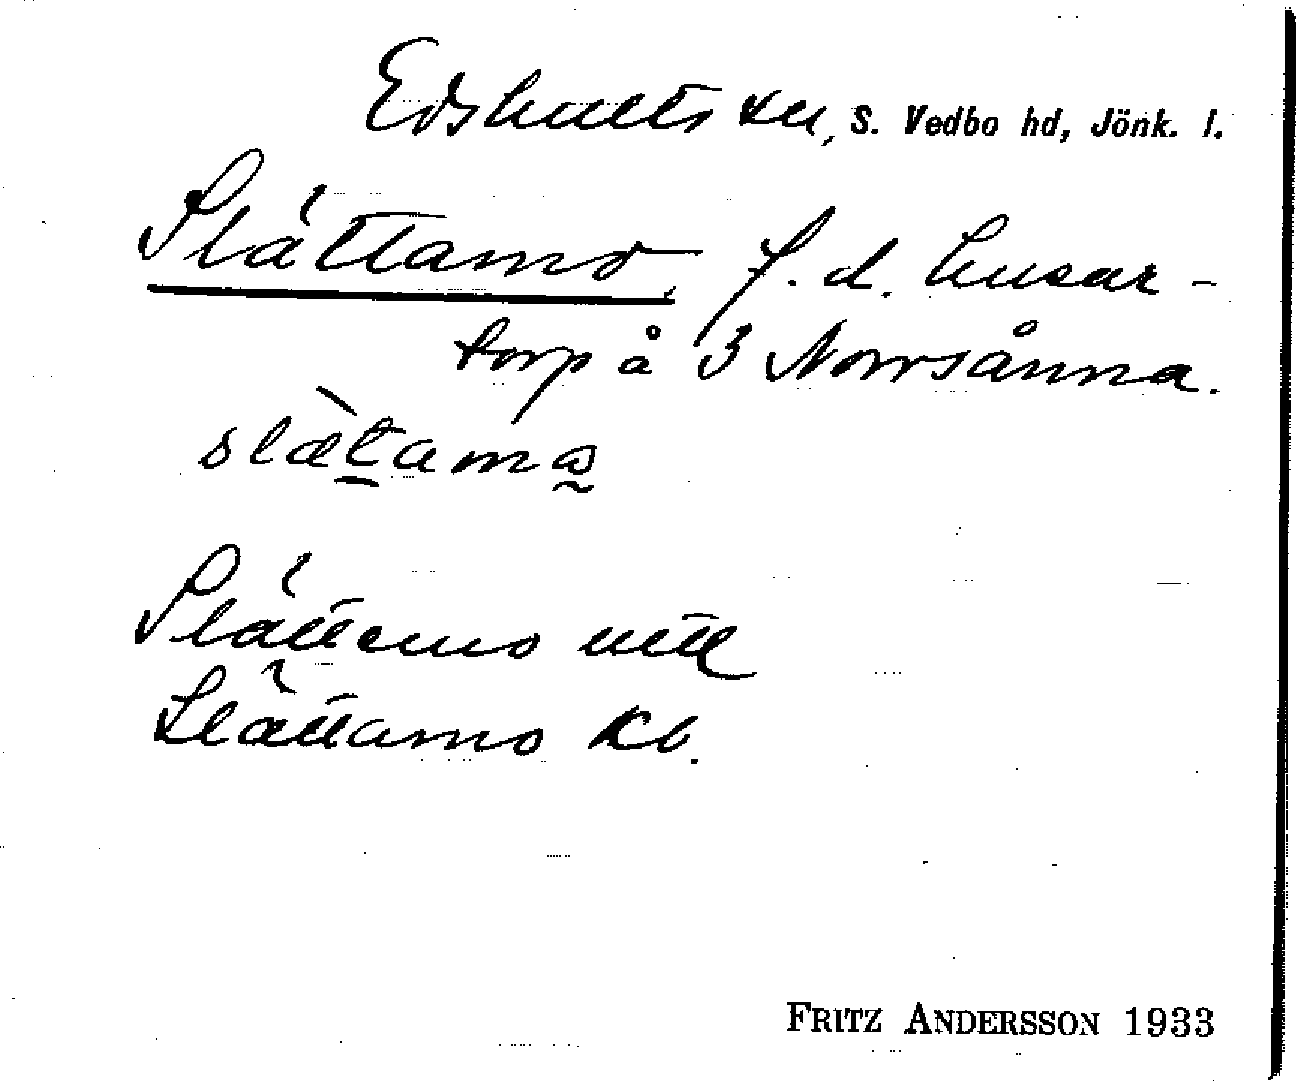 Edshults sn, S. Vedbo hd, Jönk. l.
Slättamo, f. d. husar-
torp å 3 Norrsånna.
slæ̀tama
Slättemo uttl
Slättamo Kb.
FRITZ ANDERSSON 1933